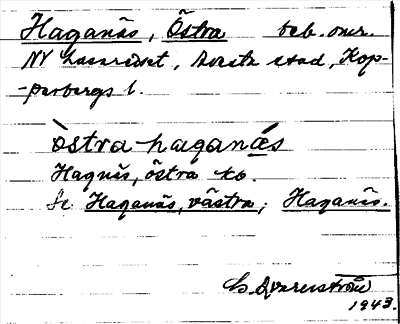 Haganäs, Östra beb. omr.
NV lasarettet, Avesta stad, Kop-
-parbergs l.
òstra haganá̱s
Hagnäs, östra ko.
Se Haganäs, västra; Haganäs.
1943.